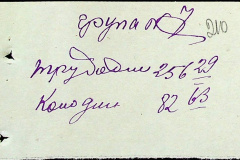 група № 7 210
трудодни 256 29
Колодин 82 63